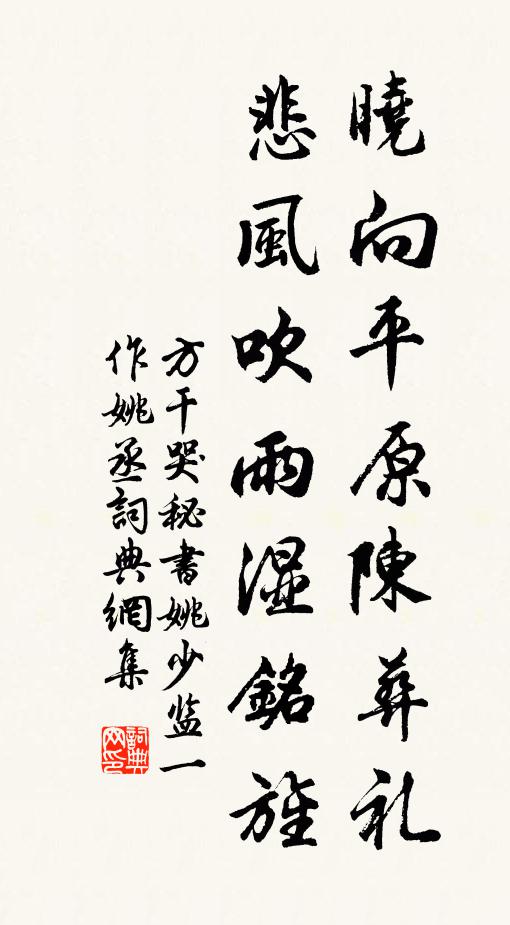 曉向平原陳葬礼
悲風吹雨濕銘旌
方干哭秘書姚少监一
作姚丞詞典網集
詞典网印